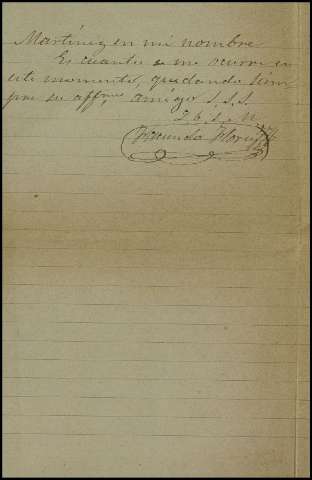 Martinez en mi nombre
Es cuanto se me ocurre en
este momento, quedando siem
pre su affmo amigo S.S.S.
Q.b.s.M.
Facundo